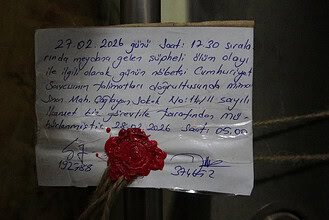 27.02.2026 günü Saat: 12.30 sırala
rında meydana gelen şüpheli ölüm olayı
ile ilgili olarak günün nöbetçi Cumhuriyet
Savcısının talimatları doğrultusunda
Sinan Mah. Çağlayan Sokak No: 16/11 sayılı
ikamet biz görevlile tarafından mü
hürlenmiştir. 28.02.2026 Saat: 05.00
192588
374652